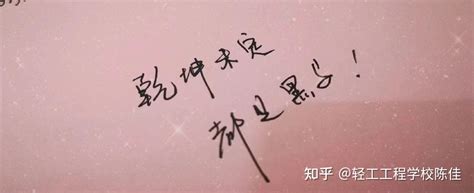 乾坤未定
都是黑马！
知乎 @轻工工程学校陈佳